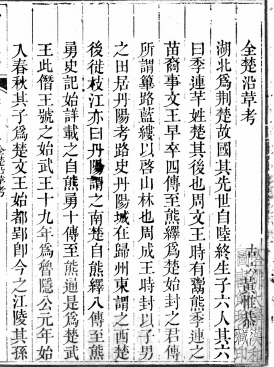 全楚沿革考
黃
湖北爲荆楚故國其先世自陸終生子六人其六
曰季連芈姓楚其後也周文王時有鬻熊季連之
苗裔事文王早卒四傳至熊繹爲楚始封之君傳
所謂篳路藍縷以啓山林也周成王時封以子男
之田居丹陽考路史丹陽城在歸州東謂之西楚
後徙枝江亦曰丹陽謂之南楚自熊繹八傳至熊
勇史記始詳載之自熊勇十傳至熊通是爲楚武
王此僭王號之始武王十九年爲魯隱公元年始
入春秋其子爲楚文王始都郢即今之江陵其孫